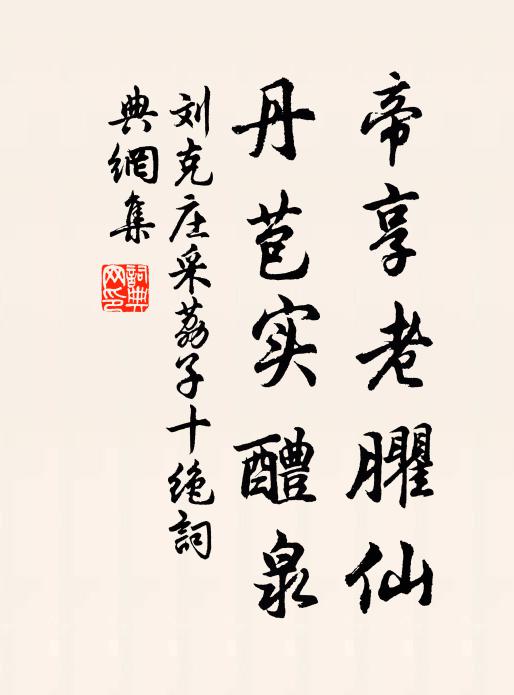 帝享老臞仙
丹苞实醴泉
刘克庄采荔子十绝詞
典網集
詞典
网印